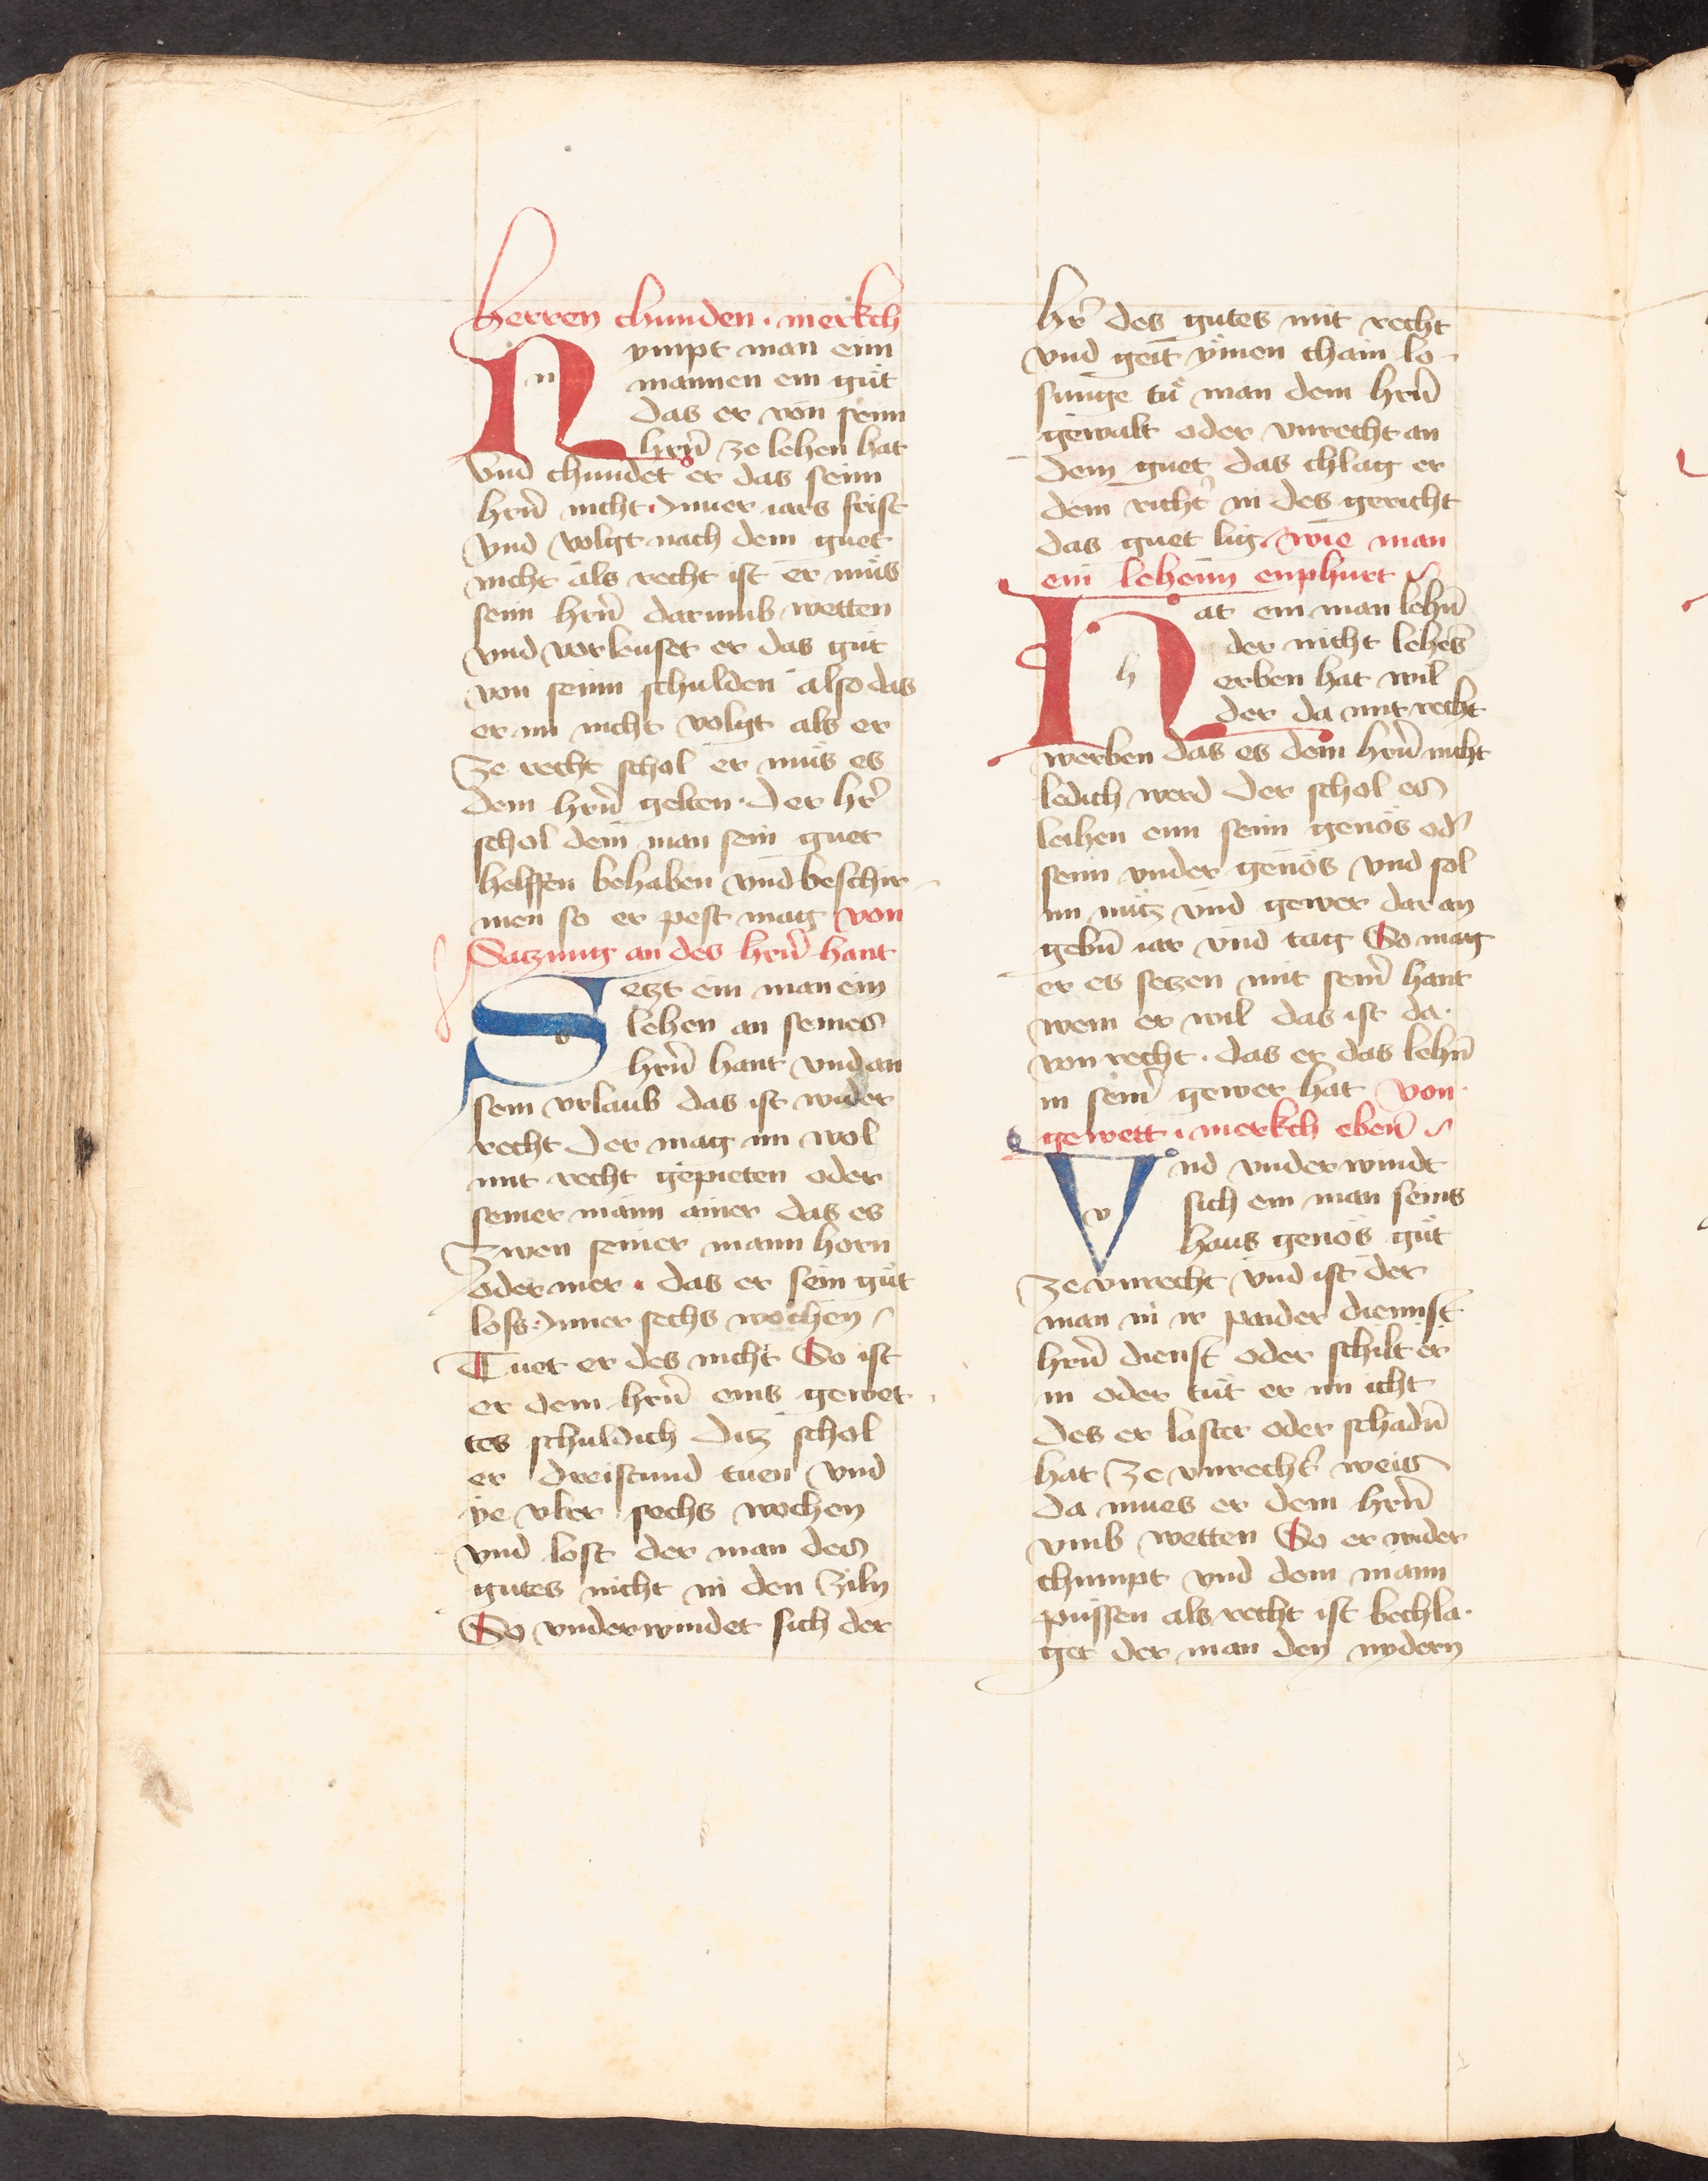 herren chunden · merkch
Nympt man einn
mannen ein guͤt
das er von seinn
hrn̄ ze lehen hat
Vnd chundet er das seinn
hrn̄ nicht · Inner iars frist
vnd volgt nach dem guet
nicht als recht ist er muͤs
seinn hrn̄ darumb wetten
vnd verleuset er das guͤt
von seinn schulden also das
er im nicht volgt als er
ze recht schol er muͤs es
dem hrn̄ gelten · Der hr̄
schol dem man sein guet
helffen behaben vnd beschir-
men so er pest mag von
Satzung an des hrn̄ hant
Setzt ein man ein
lehen an seines
hrn̄ hant vnd an
sein vrlaub das ist wider
recht Der mag im wol
mit recht gepieten oder
seiner mann ainer das es
zwen seiner mann horn
oder mer · das er sein guͤt
loss · Inner sechs wochen
Tuet er des nicht So ist
er dem hrn̄ eins gewet
tes schuldich Ditz schol
er dreistund tuen vnd
ye vber sechs wochen
vnd lost der man des
gutes nicht in den ziln
So vnderwindet sich der
hr̄ des gutes mit recht
vnd geit ymen chain lo-
sunge tuͤ man dem hrn̄
gewalt oder vnrecht an
dem guet das chlag er
dem richt̄ in des gericht
das guet lig · wie man
ein lehenn enphurt
Hat ein man lehn̄
der nicht lehes̄
erben hat wil
der da mit recht
werben das es dem hrn̄ nicht
ledich werd der schol es
leihen einn seinn genoͤs od̄
seinn vnder genoͤs vnd sol
im nutz vnd gewer dar an
gebn̄ iar vnd tag So mag
er es setzen mit sein̄ hant
wem er wil das ist da
von recht · das er das lehn̄
in sein̄ gewer hat von
gewett · merkch eben̄
Vnd vnderwindt
sich ein man seins
haus genoͤs guͤt
ze vnrecht vnd ist der
man in ir paider diennst
hrn̄ dienst oder schilt er
in oder tuͤt er im icht
des er laster oder schadn̄
hat ze vnrecht̄ weis
da mues er dem hrn̄
vmb wetten So er wider
chumpt vnd dem mann
puͤssen als recht ist bechla-
get der man den nydern